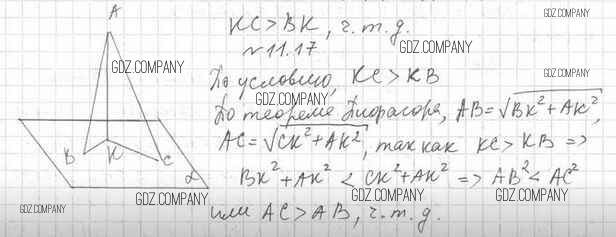 A
KC > BK, ч.т.д.
N 11.17
По условию, KC > KB
По теореме Пифагора, AB = √BK² + AK²,
AC = √CK² + AK², так как KC > KB =>
BK² + AK² < CK² + AK² => AB² < AC²
или AC > AB, ч.т.д.
B
K
C
α
GDZ.COMPANY
GDZ.COMPANY
GDZ.COMPANY
GDZ.COMPANY
GDZ.COMPANY
GDZ.COMPANY
GDZ.COMPANY
GDZ.COMPANY
GDZ.COMPANY
GDZ.COMPANY
GDZ.COMPANY